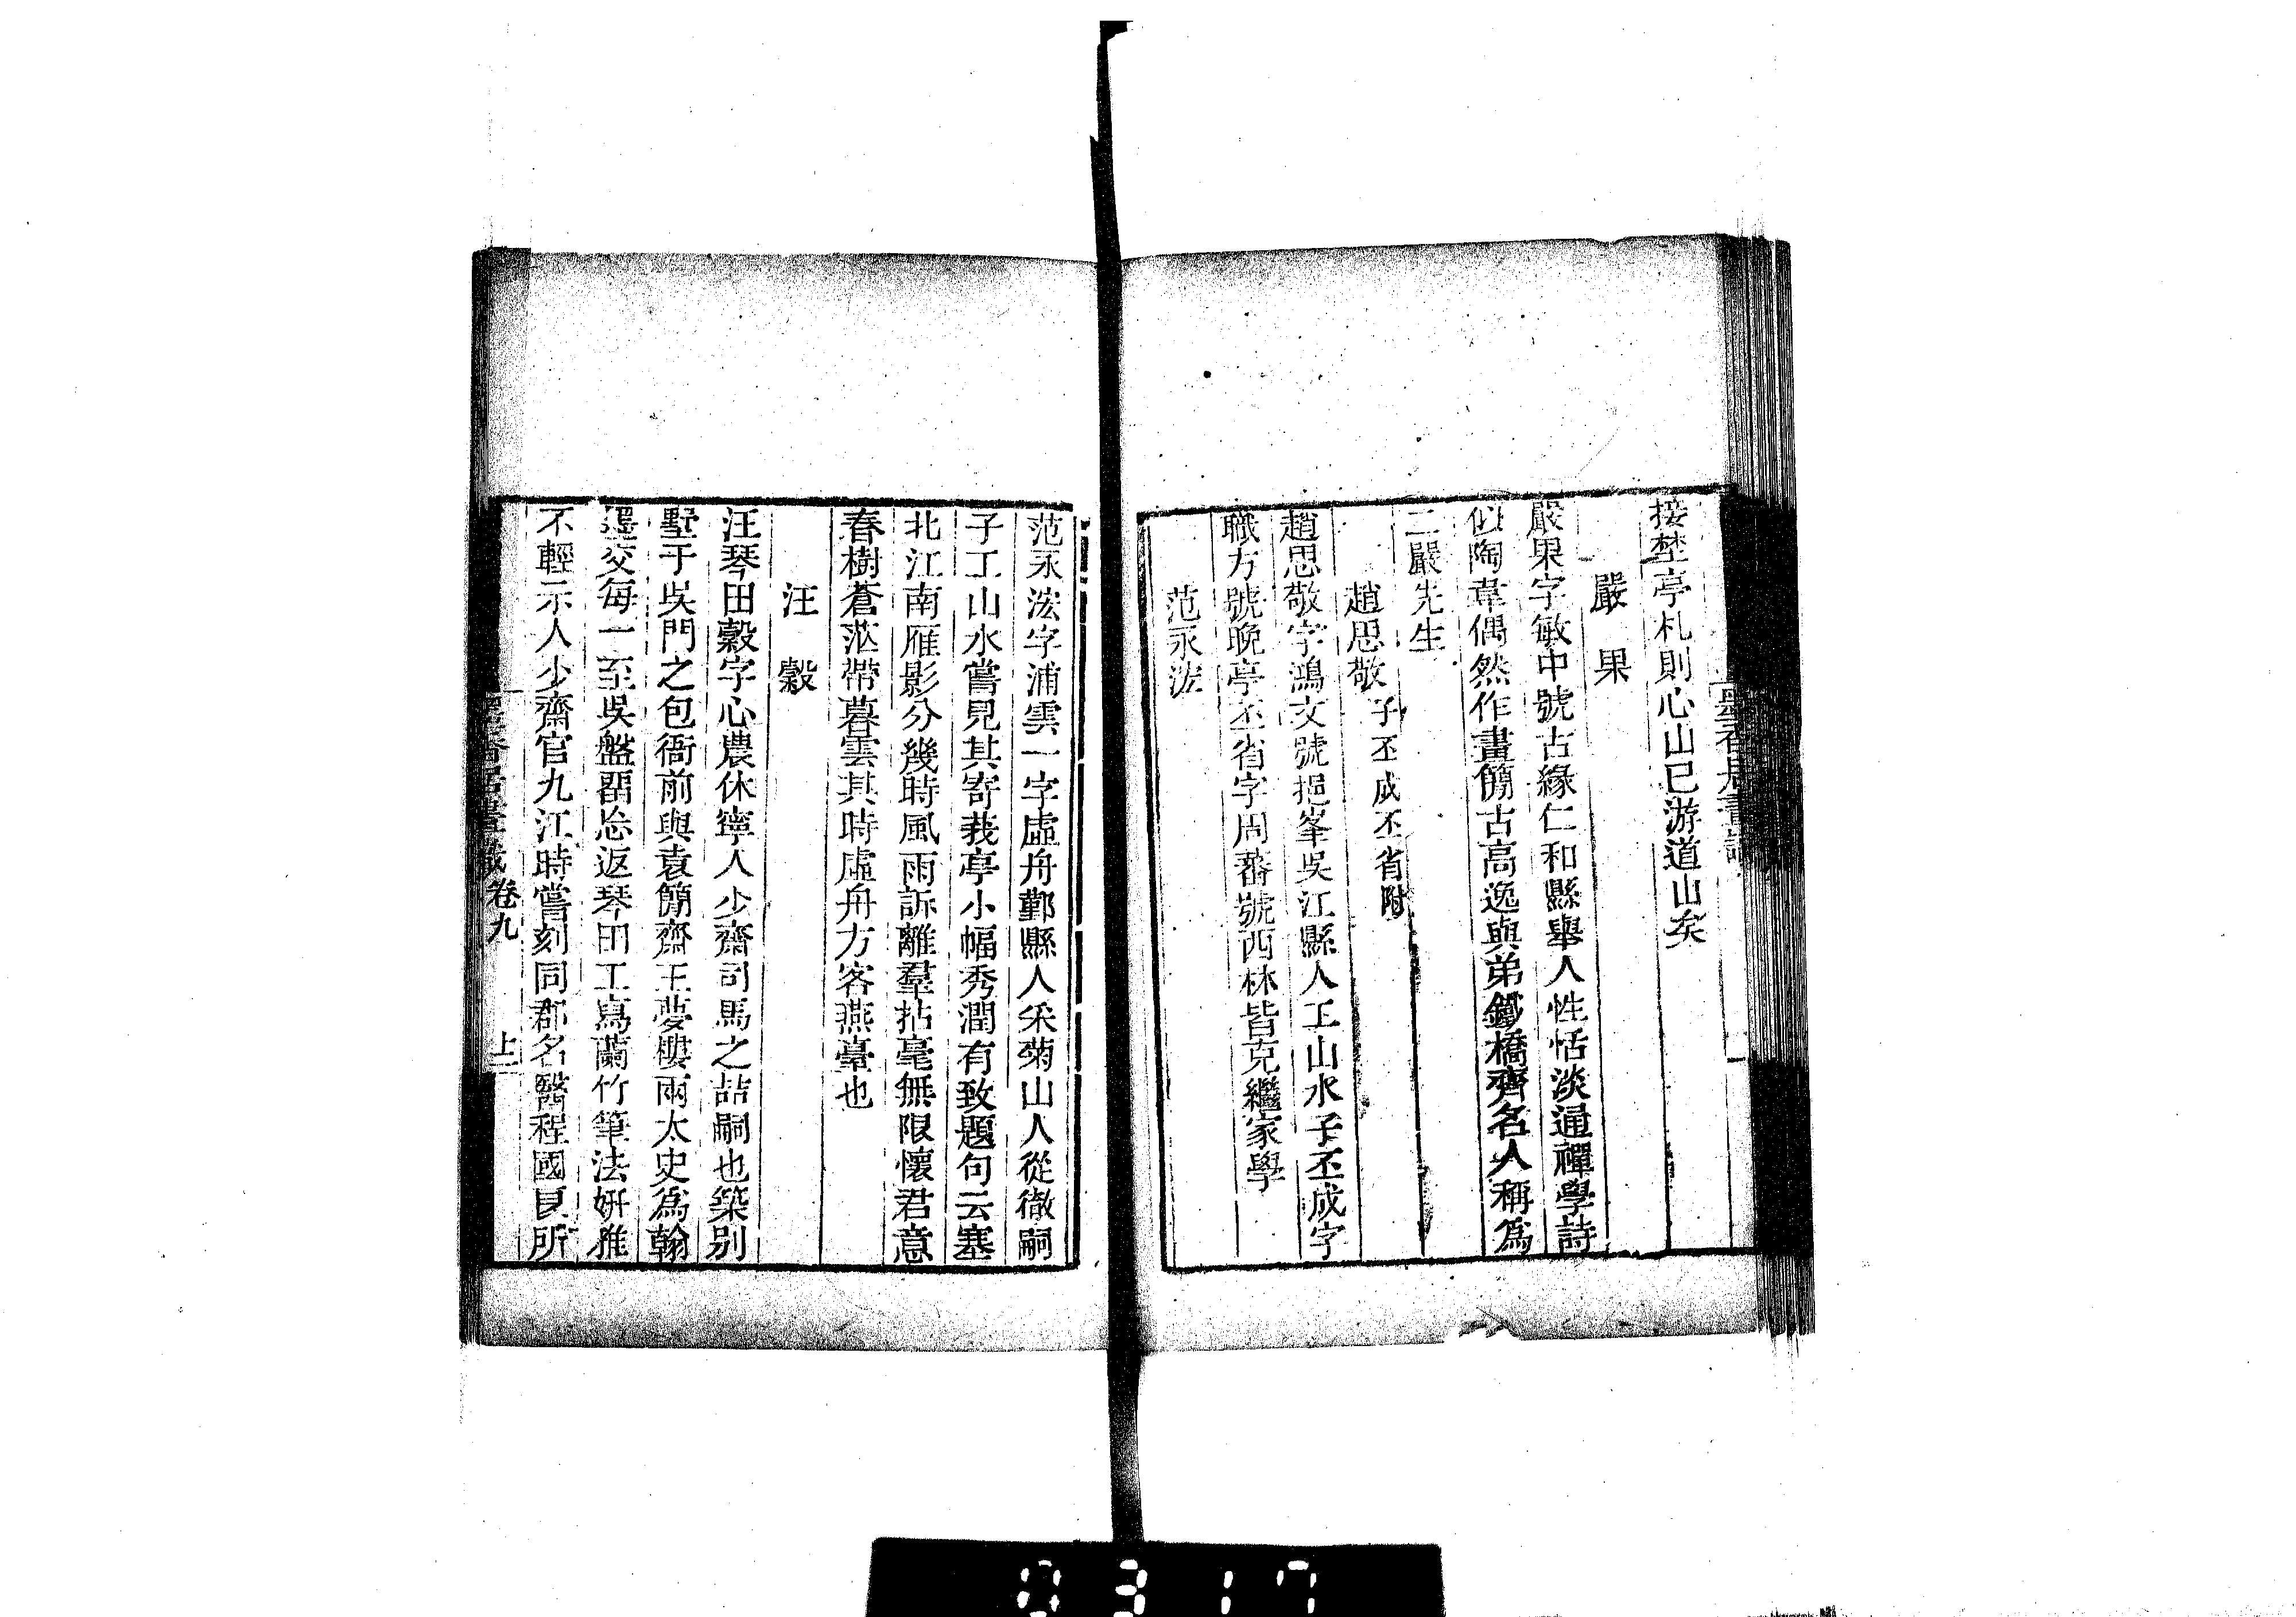 接埜亭札則心山已游道山矣
嚴果
嚴果字敏中號古緣仁和縣舉人性恬淡通禪學詩
似陶韋偶然作畫簡古高逸與弟鐵橋齊名人稱爲
二嚴先生
趙思敬子丕成丕省附
趙思敬字鴻文號挹峯吳江縣人工山水子丕成字
職方號晚亭丕省字周蕃號西林皆克繼家學
范永浤
范永浤字浦雲一字虛舟鄞縣人采菊山人從徹嗣
子工山水嘗見其寄莪亭小幅秀潤有致題句云塞
北江南雁影分幾時風雨訴離羣拈毫無限懷君意
春樹蒼茫帶暮雲其時虛舟方客燕臺也
汪穀
汪琴田穀字心農休寧人少齋司馬之喆嗣也築别
墅于吳門之包衙前與袁簡齋王夢樓兩太史爲翰
墨交每一至吳盤畱忘返琴田工寫蘭竹筆法妍雅
不輕示人少齋官九江時嘗刻同郡名醫程國
所
墨香居畫識卷九
上
0317